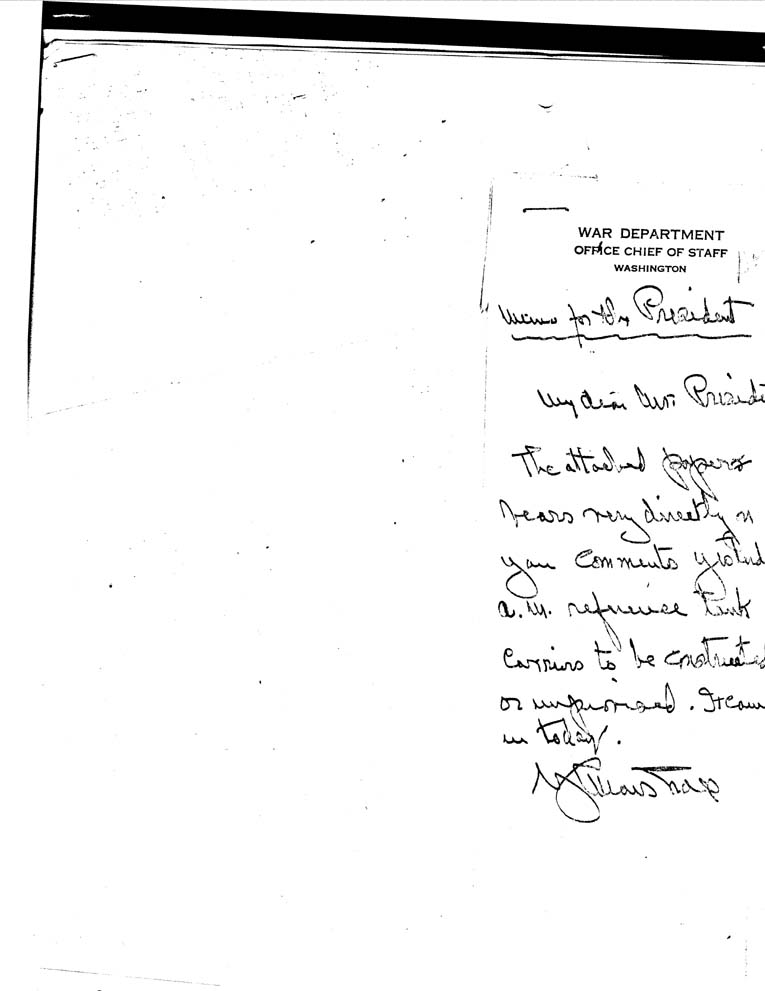 WAR DEPARTMENT
OFFICE CHIEF OF STAFF
WASHINGTON
Memo for the President
My dear Mr. Presid
The attached papers
bears very directly on
your comments yesterd
a.m. reference tank
carriers to be constructed
or improvised. It came
in today.
G C Marshall